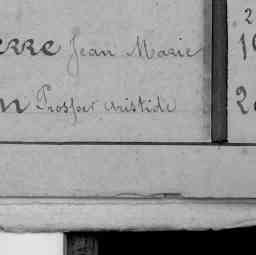 erre Jean Marie
n Prosper Aristide